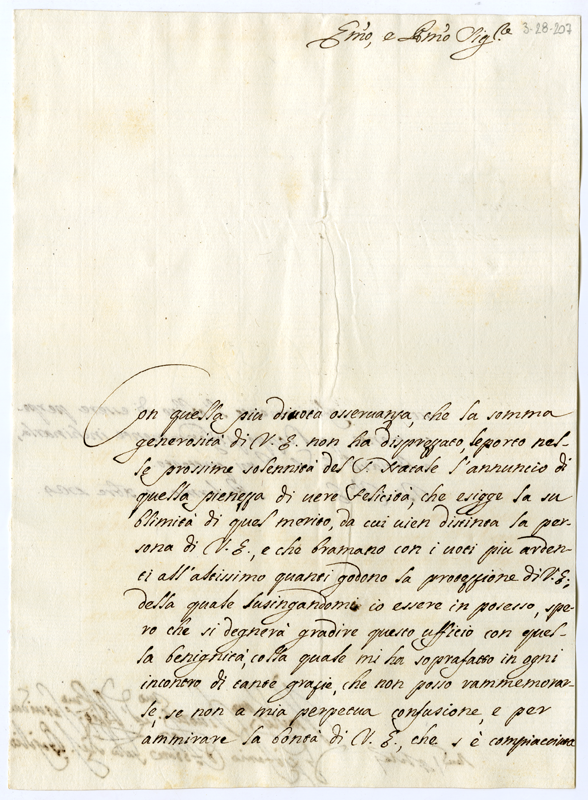 Em̃o, e Rm̃o Sig.re 3-28-207
Con quella piu divota osservanza, che la somma
generosità di V. E. non hà disprezzato, le porto nel-
le prossime solennità del S. Natale l'annuncio di
quella pienezza di vere felicità, che esigge la su
blimità di quel merito, da cui vien distinta la per-
sona di V. E., e che bramano con i voti piu arden-
ti all'altissimo quanti godono la protezzione di V. E.,
della quale lusingandomi io essere in posesso, spe-
ro che si degnerà gradire questo ufficio con quel-
la benignità, colla quale mi ha soprafatto in ogni
incontro di tante grazie, che non posso rammemorar-
le, se non a mia perpetua confusione, e per
ammirare la bontà di V. E., che s'è compiacciuta